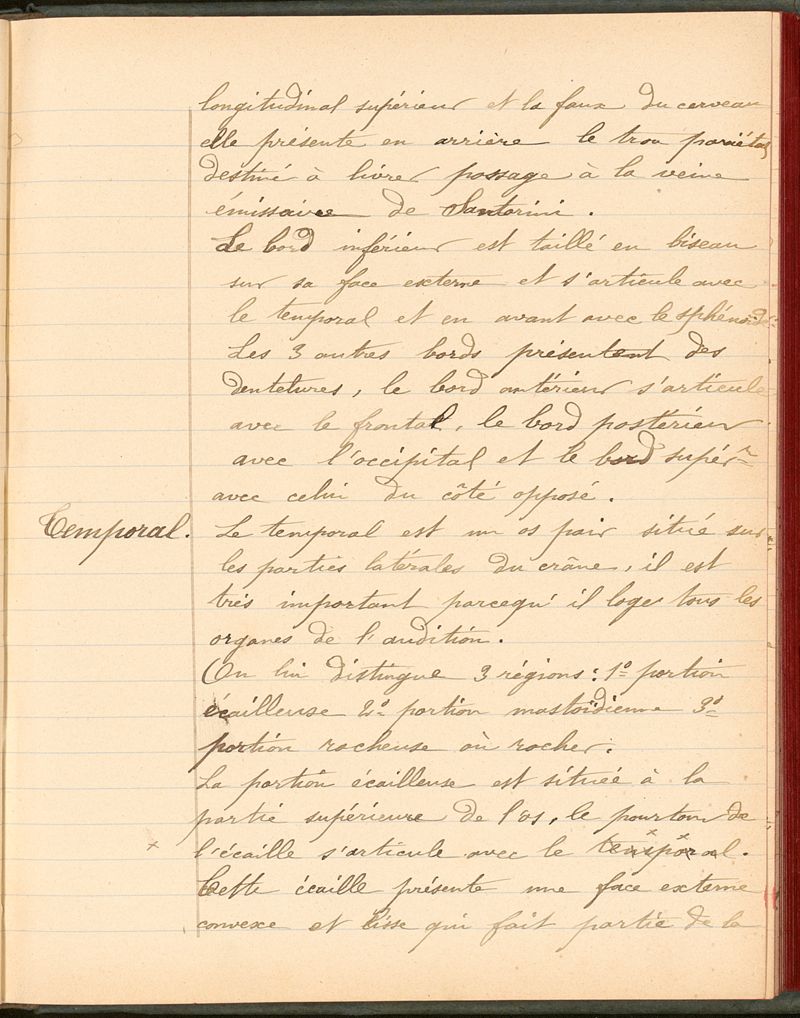 longitudinal supérieur et la faux du cerveau
elle présente en arrière le trou pariétal
destiné à livrer passage à la veine
émissaire de Santorini.
Le bord inférieur est taillé en biseau
sur sa face externe et s'articule avec
le temporal et en avant avec le sphénoïde
Les 3 autres bords présentent des
dentetures, le bord antérieur s'articule
avec le frontal, le bord postérieur
avec l'occipital et le bord supér^r
avec celui du côté opposé.
Temporal. Le temporal est un os pair situé sur
les parties latérales du crâne, il est
très important parcequ'il loge tous les
organes de l'audition.
On lui distingue 3 régions: 1° portion
écailleuse 2° portion mastoïdienne 3°
portion rocheuse où rocher.
La portion écailleuse est située à la
partie supérieure de l'os, le pourtour de
x l'écaille s'articule avec le temporal.
Cette écaille présente une face externe
convexe et lisse qui fait partie de la